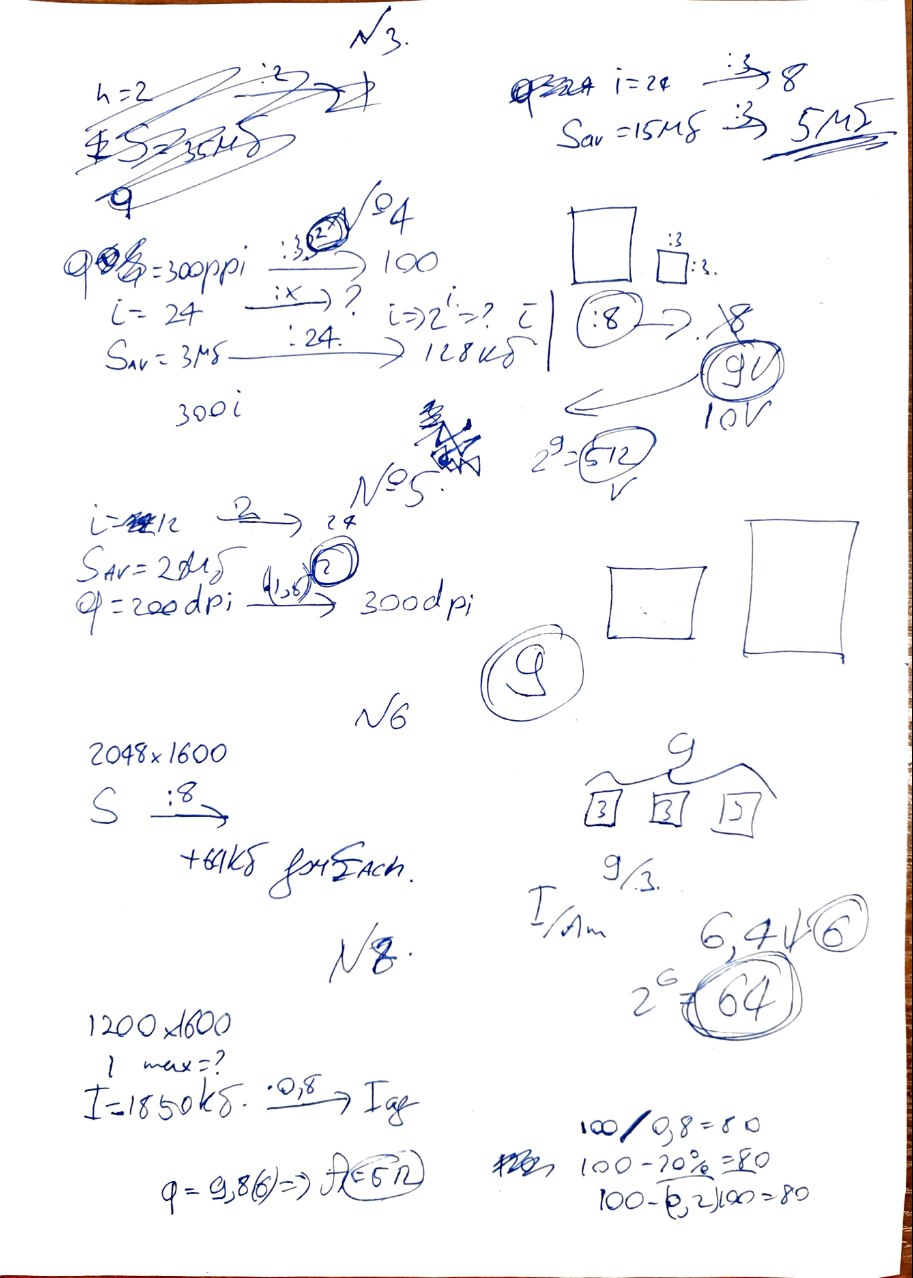 N3.
h=2 :2
S=35Мб
q
i=24 :3 8
Sav=15Мб :3 5Мб
№4
q =300ppi :3 2 100
i=24 :x ? i=>2^i=? i
SAV=3Мб :24. 128Кб
300i
:3
:3.
:8 8
9V
10V
2^9=512
V
№5.
i= 12 2 24
SAV=2Мб
q=200dpi (1,5)^2 300dpi
9
N6
2048x1600
S :8
+64Кб for EACH.
9
3 3 3
9/3.
I/Am
6,4↓6
2^6=64
N8.
1200x1600
1 max=?
I=1850Кб. ·0,8 I
q=9,8(6)=> =512
100/0,8=80
100-20%=80
100-(0,2)100=80